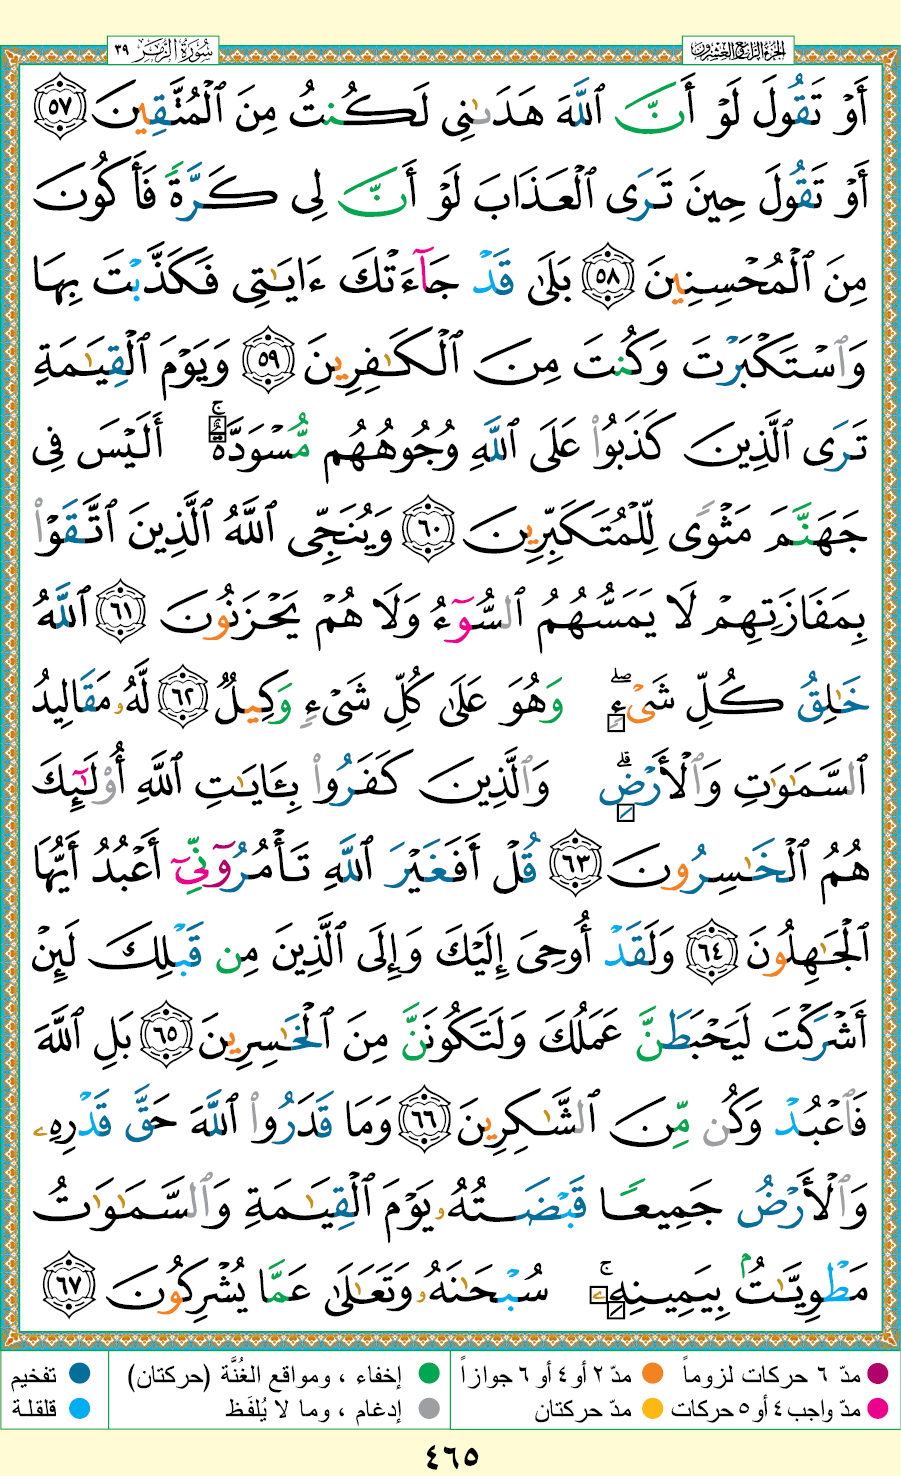 الجزء الرابع والعشرون
سورة الزمر ٣٩
أَوْ تَقُولَ لَوْ أَنَّ ٱللَّهَ هَدَىٰنِى لَكُنتُ مِنَ ٱلْمُتَّقِينَ ٥٧
أَوْ تَقُولَ حِينَ تَرَى ٱلْعَذَابَ لَوْ أَنَّ لِى كَرَّةً فَأَكُونَ
مِنَ ٱلْمُحْسِنِينَ ٥٨ بَلَىٰ قَدْ جَآءَتْكَ ءَايَٰتِى فَكَذَّبْتَ بِهَا
وَٱسْتَكْبَرْتَ وَكُنتَ مِنَ ٱلْكَٰفِرِينَ ٥٩ وَيَوْمَ ٱلْقِيَٰمَةِ
تَرَى ٱلَّذِينَ كَذَبُوا۟ عَلَى ٱللَّهِ وُجُوهُهُم مُّسْوَدَّةٌ ۚ أَلَيْسَ فِى
جَهَنَّمَ مَثْوًى لِّلْمُتَكَبِّرِينَ ٦٠ وَيُنَجِّى ٱللَّهُ ٱلَّذِينَ ٱتَّقَوْا۟
بِمَفَازَتِهِمْ لَا يَمَسُّهُمُ ٱلسُّوٓءُ وَلَا هُمْ يَحْزَنُونَ ٦١ ٱللَّهُ
خَٰلِقُ كُلِّ شَىْءٍ ۖ وَهُوَ عَلَىٰ كُلِّ شَىْءٍ وَكِيلٌ ٦٢ لَّهُۥ مَقَالِيدُ
ٱلسَّمَٰوَٰتِ وَٱلْأَرْضِ ۗ وَٱلَّذِينَ كَفَرُوا۟ بِـَٔايَٰتِ ٱللَّهِ أُو۟لَٰٓئِكَ
هُمُ ٱلْخَٰسِرُونَ ٦٣ قُلْ أَفَغَيْرَ ٱللَّهِ تَأْمُرُوٓنِّىٓ أَعْبُدُ أَيُّهَا
ٱلْجَٰهِلُونَ ٦٤ وَلَقَدْ أُوحِىَ إِلَيْكَ وَإِلَى ٱلَّذِينَ مِن قَبْلِكَ لَئِنْ
أَشْرَكْتَ لَيَحْبَطَنَّ عَمَلُكَ وَلَتَكُونَنَّ مِنَ ٱلْخَٰسِرِينَ ٦٥ بَلِ ٱللَّهَ
فَٱعْبُدْ وَكُن مِّنَ ٱلشَّٰكِرِينَ ٦٦ وَمَا قَدَرُوا۟ ٱللَّهَ حَقَّ قَدْرِهِۦ
وَٱلْأَرْضُ جَمِيعًا قَبْضَتُهُۥ يَوْمَ ٱلْقِيَٰمَةِ وَٱلسَّمَٰوَٰتُ
مَطْوِيَّٰتٌۢ بِيَمِينِهِۦ ۚ سُبْحَٰنَهُۥ وَتَعَٰلَىٰ عَمَّا يُشْرِكُونَ ٦٧
مدّ ٦ حركات لزوماً مدّ ٢ أو ٤ أو ٦ جوازاً إخفاء ، ومواقع الغُنَّة (حركتان) تفخيم
مدّ واجب ٤ أو ٥ حركات مدّ حركتان إدغام ، وما لا يُلفَظ قلقلة
٤٦٥